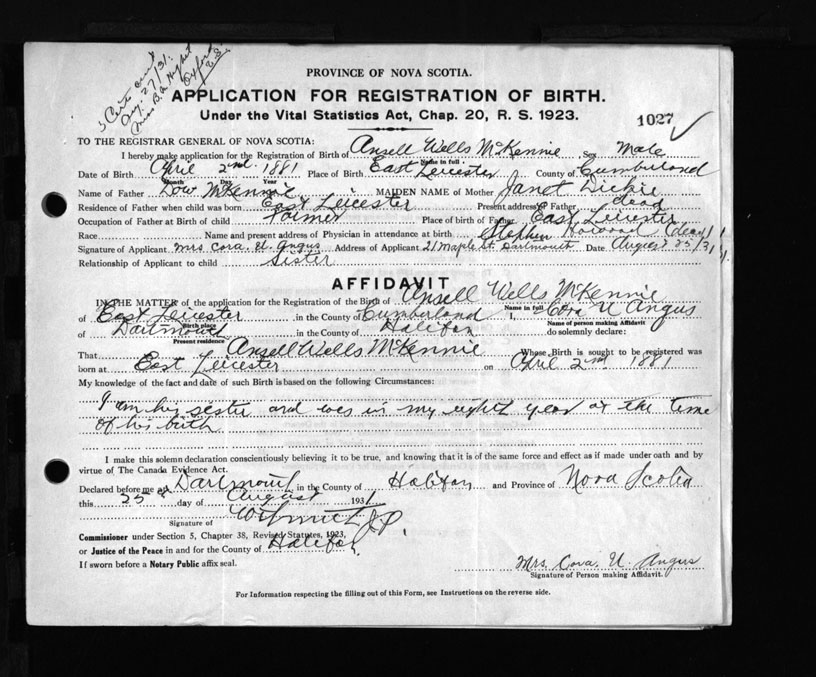 3 Certs sent
Aug. 27/31.
Miss B.A.
Oxford
PROVINCE OF NOVA SCOTIA.
APPLICATION FOR REGISTRATION OF BIRTH.
Under the Vital Statistics Act, Chap. 20, R. S. 1923.
1027
TO THE REGISTRAR GENERAL OF NOVA SCOTIA:
I hereby make application for the Registration of Birth of Ansell Wells McKennie Sex Male
Name in full
Date of Birth April 2nd 1881 Place of Birth East Leicester County of Cumberland
Month Day Year
Name of Father Dow McKennie MAIDEN NAME of Mother Janet Dickie
Residence of Father when child was born East Leicester Present address of Father dead
Occupation of Father at Birth of child Farmer Place of birth of Father East Leicester
Race Name and present address of Physician in attendance at birth Stephen (dead)
Signature of Applicant Mrs. Cora U. Angus Address of Applicant 21 Maple St. Dartmouth Date August 25/31
Relationship of Applicant to child Sister
AFFIDAVIT
IN THE MATTER of the application for the Registration of the Birth of Ansell Wells McKennie
Name in full
of East Leicester in the County of Cumberland I, Cora U Angus
Birth place Name of person making Affidavit
of Dartmouth in the County of Halifax do solemnly declare:
Present residence
That Ansell Wells McKennie Whose Birth is sought to be registered was
born at East Leicester on April 2nd 1881
My knowledge of the fact and date of such Birth is based on the following Circumstances:
I am his sister and was in my eighth year at the time
of his birth
I make this solemn declaration conscientiously believing it to be true, and knowing that it is of the same force and effect as if made under oath and by
virtue of The Canada Evidence Act.
Declared before me at Dartmouth in the County of Halifax and Province of Nova Scotia
this 25th day of August 1931
J.P.
Signature of
Commissioner under Section 5, Chapter 38, Revised Statutes, 1923,
or Justice of the Peace in and for the County of Halifax
If sworn before a Notary Public affix seal.
Mrs. Cora. U. Angus
Signature of Person making Affidavit.
For Information respecting the filling out of this Form, see Instructions on the reverse side.